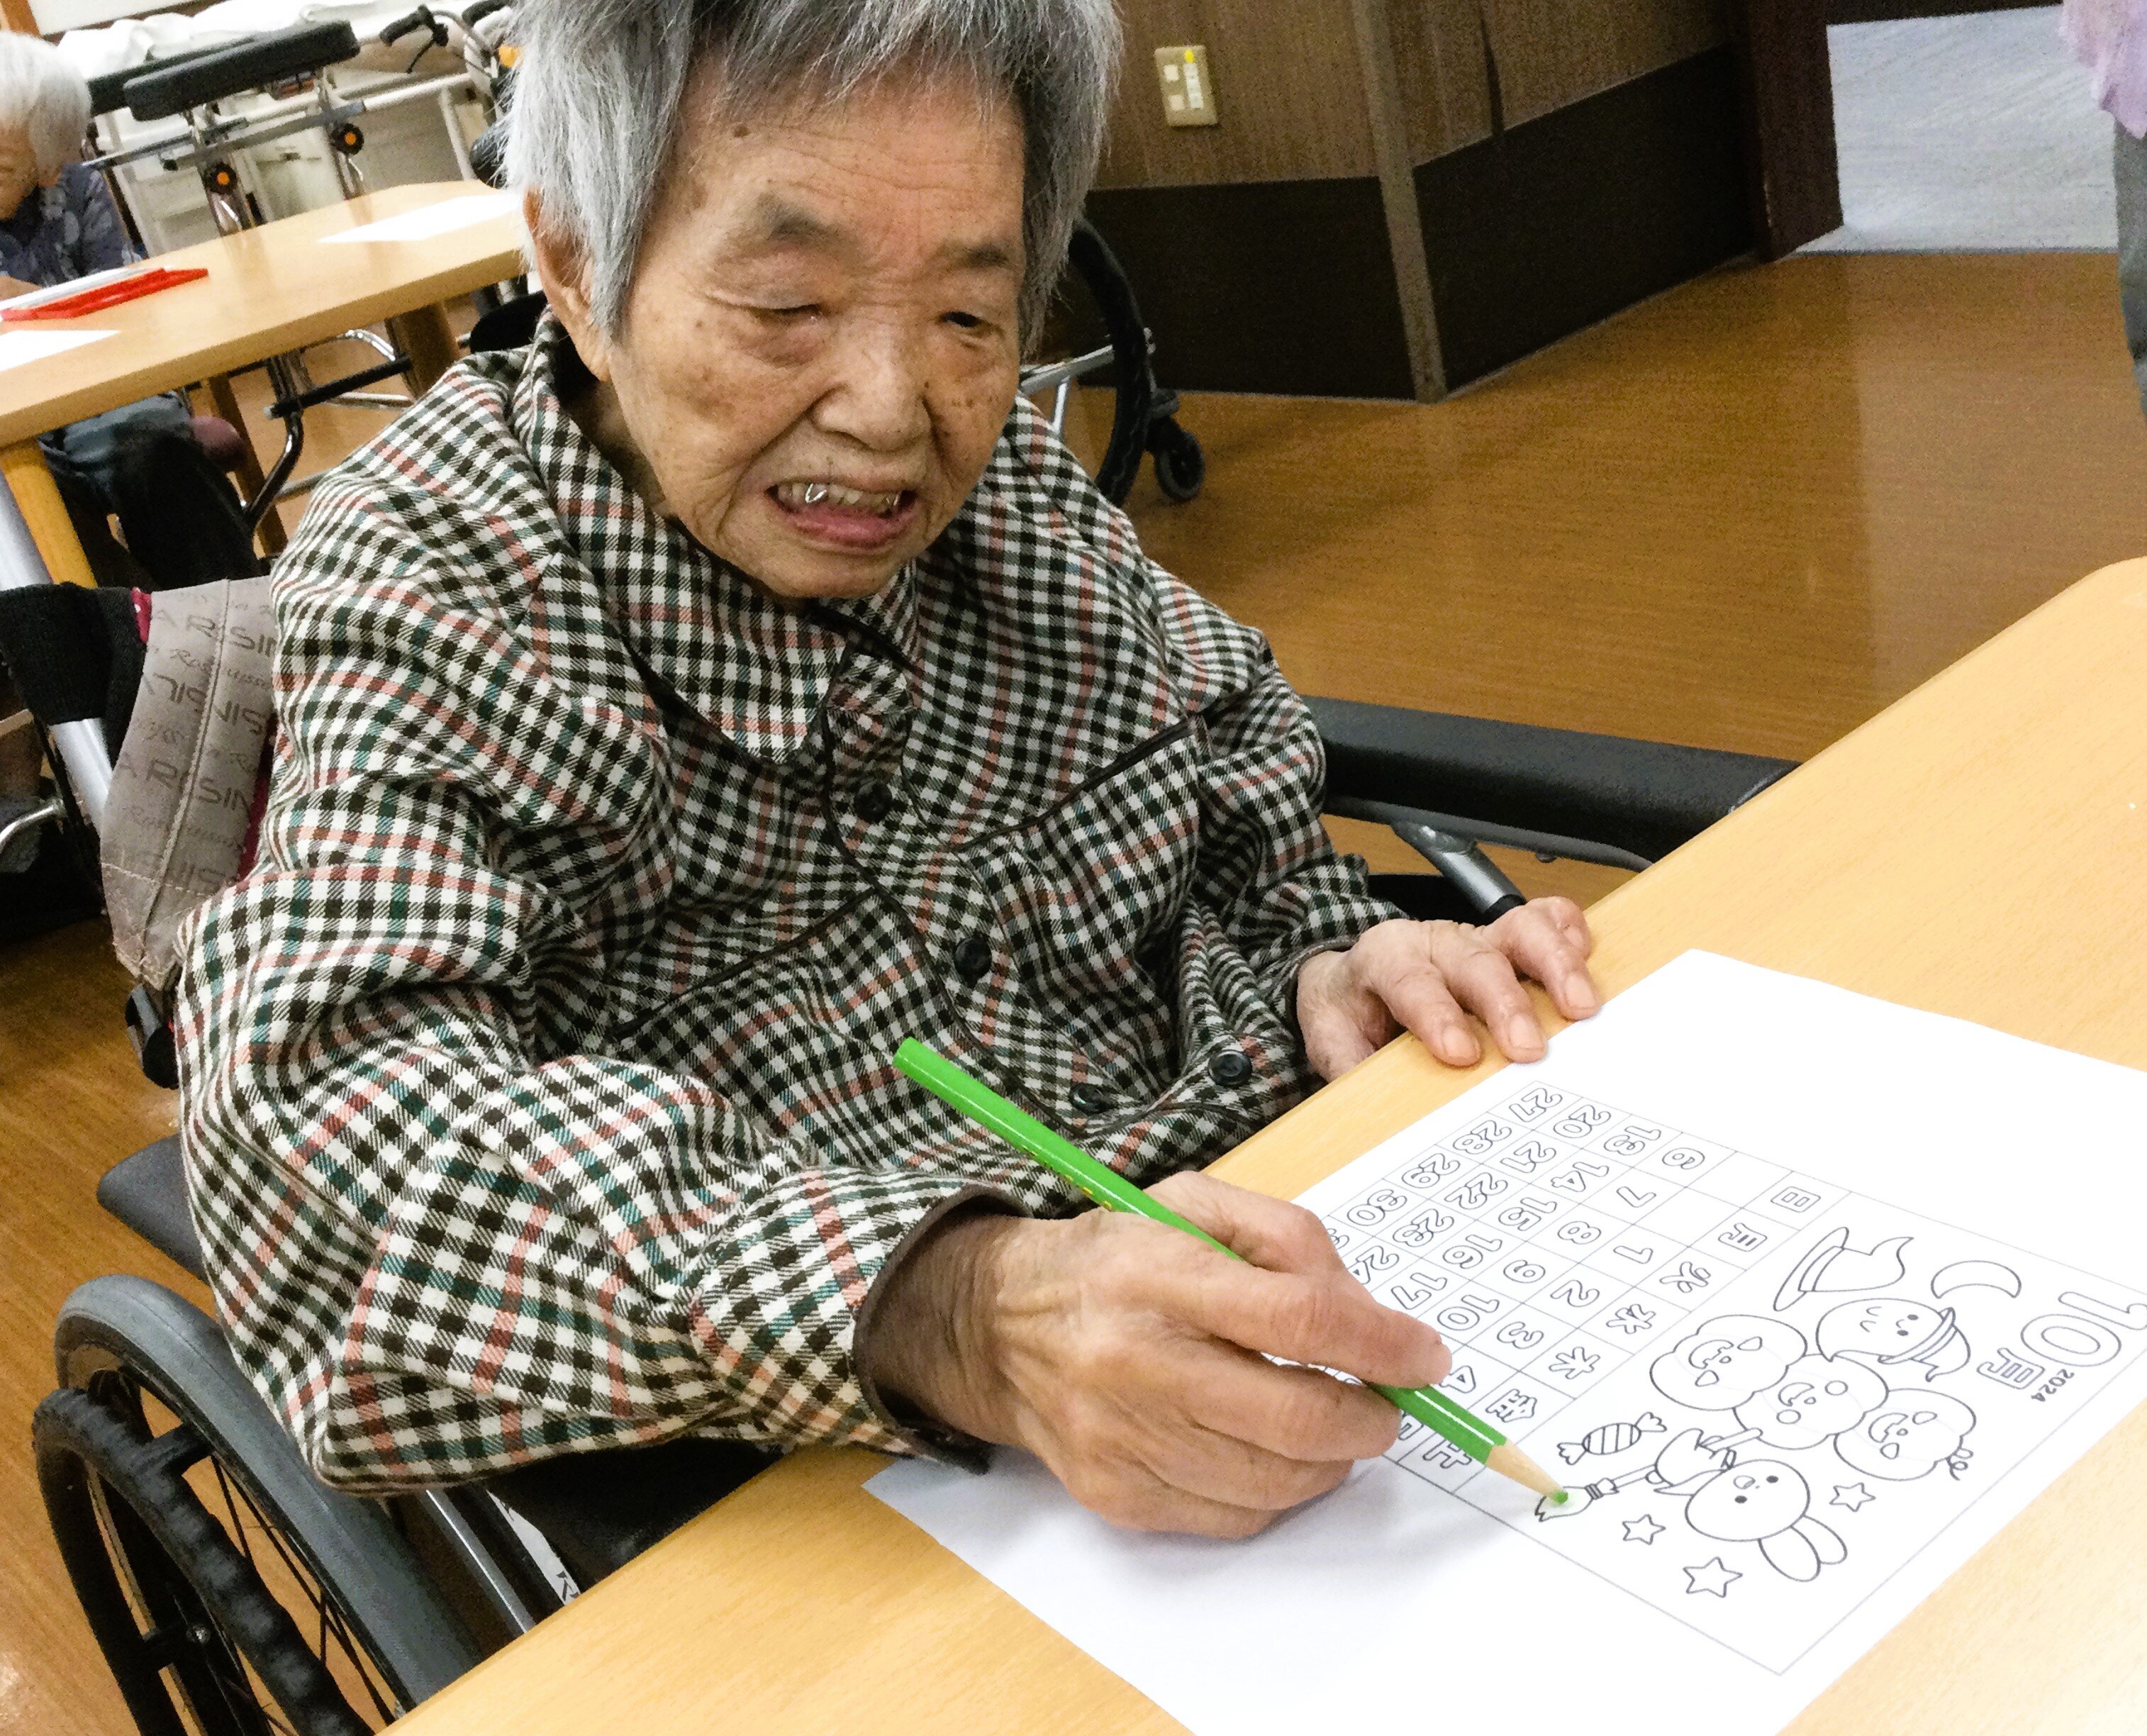 10月
2024
日 月 火 水 木 金 土
1 2 3 4
6 7 8 9 10
13 14 15 16 17
20 21 22 23 24
27 28 29 30